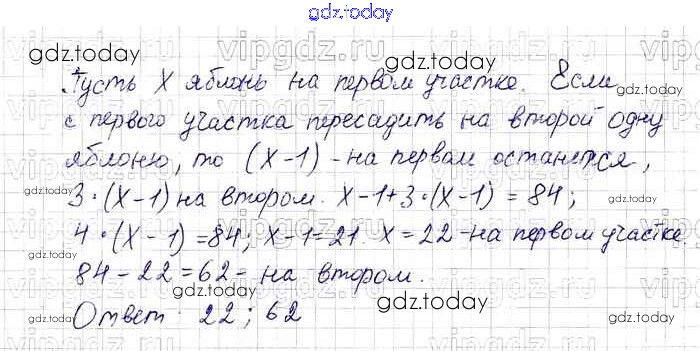 gdz.today
Пусть X яблонь на первом участке. Если
с первого участка пересадить на второй одну
яблоню, то (X-1) - на первом останется,
3·(X-1) на втором. X-1+3·(X-1) = 84;
4·(X-1)=84; X-1=21. X=22-на первом участке.
84-22=62- на втором.
Ответ 22; 62
gdz.today
gdz.today
gdz.today
gdz.today
gdz.today
gdz.today
gdz.today
gdz.today
gdz.today